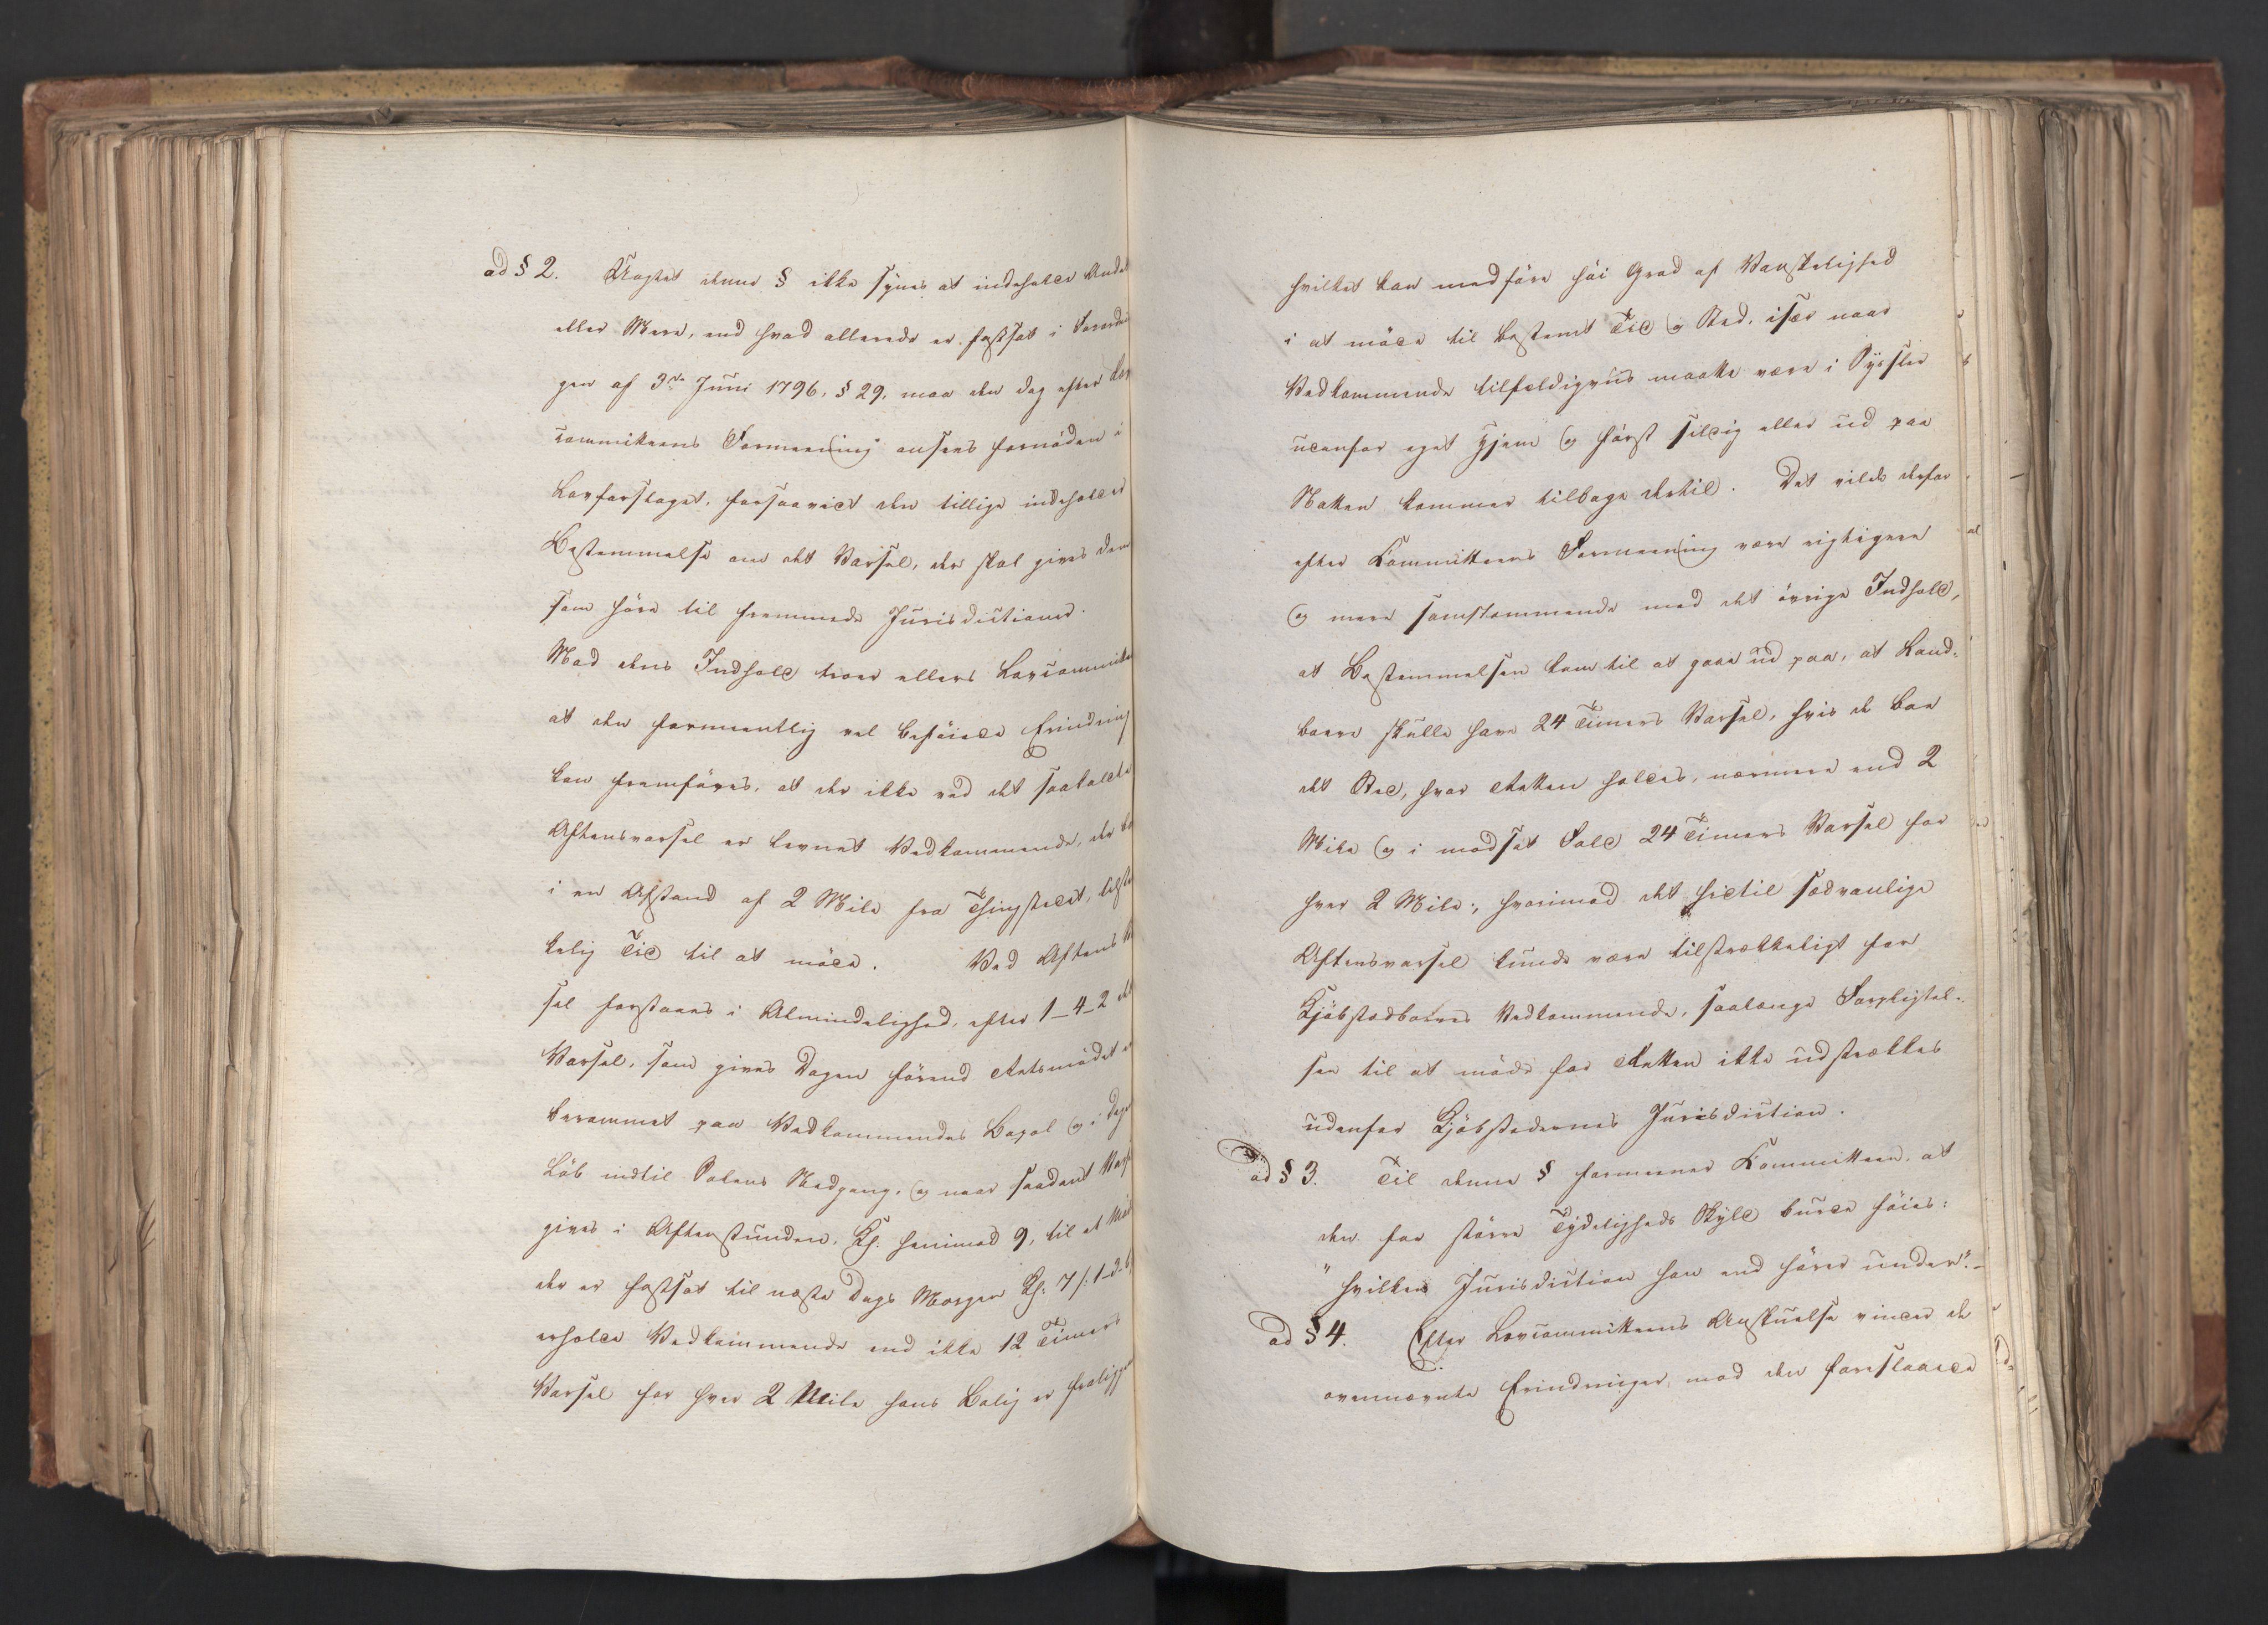 ad § 2. Uagtet denne § ikke synes at indeholde Andet
eller Mere, end hvad allerede er fastsat i Forordnin
gen af 3die Juni 1796, § 29, maa den dog efter Lov
committeens Formening ansees fornöden i
Lovforslaget, forsaavidt den tillige indeholder
Bestemmelse om det Varsel, der skal gives dem
som höre til fremmede Jurisdictioner.
Mod dens Indhold troer ellers Lovcommitte
at den formentlig vel beföiede Erindring
kan fremföres, at der ikke ved det saakaldte
Aftensvarsel er levnet Vedkommende, der bo
i en Afstand af 2 Mile fra Thingstedet, tilstræ
kelig Tid til at möde. Ved Aftens
sel forstaaes i Almindelighed, efter 1–4–2 det
Varsel, som gives Dagen förend Retsmödet er
berammet paa Vedkommendes Bopæl og i Dagens
Löb indtil Solens Nedgang, og naar saadant Varsel
gives i Aftenstunden, Kl. henimod 9, til et Möde
der er fastsat til næste Dags Morgen Kl. 7 /: 1-3-6
erholde Vedkommende end ikke 12 Timers
Varsel for hver 2 Mile hans Bolig er fraliggen
hvilket kan medföre höi Grad af Vanskelighed
i at möde til bestemt Tid og Sted, især naar
Vedkommende tilfældigviis maatte være i Sysler
udenfor eget Hjem og först sildig eller ud paa
Natten kommer tilbage dertil. Det vilde derfor
efter Committeens Formening være rigtigere
og mere samstemmende med det övrige Indhold,
at Bestemmelsen kom til at gaae ud paa, at Land-
boere skulle have 24 Timers Varsel, hvis de boe
det Sted, hvor Retten holdes, nærmere end 2
Mile og i modsat Fald 24 Timers Varsel for
hver 2 Mile; hvorimod det hidtil sædvanlige
Aftensvarsel kunde være tilstrækkeligt for
Kjöbstædboeres Vedkommende, saalænge Forpligtel-
sen til at möde for Retten ikke udstrækkes
udenfor Kjöbstædernes Jurisdiction.
ad § 3. Til denne § formener Committeen, at
der for större Tydeligheds Skyld burde föies:
"hvilken Jurisdiction han end hörer under". –
ad § 4. Efter Lovcommitteens Anskuelse vinder de
ovennævnte Erindringer mod den foreslaaede